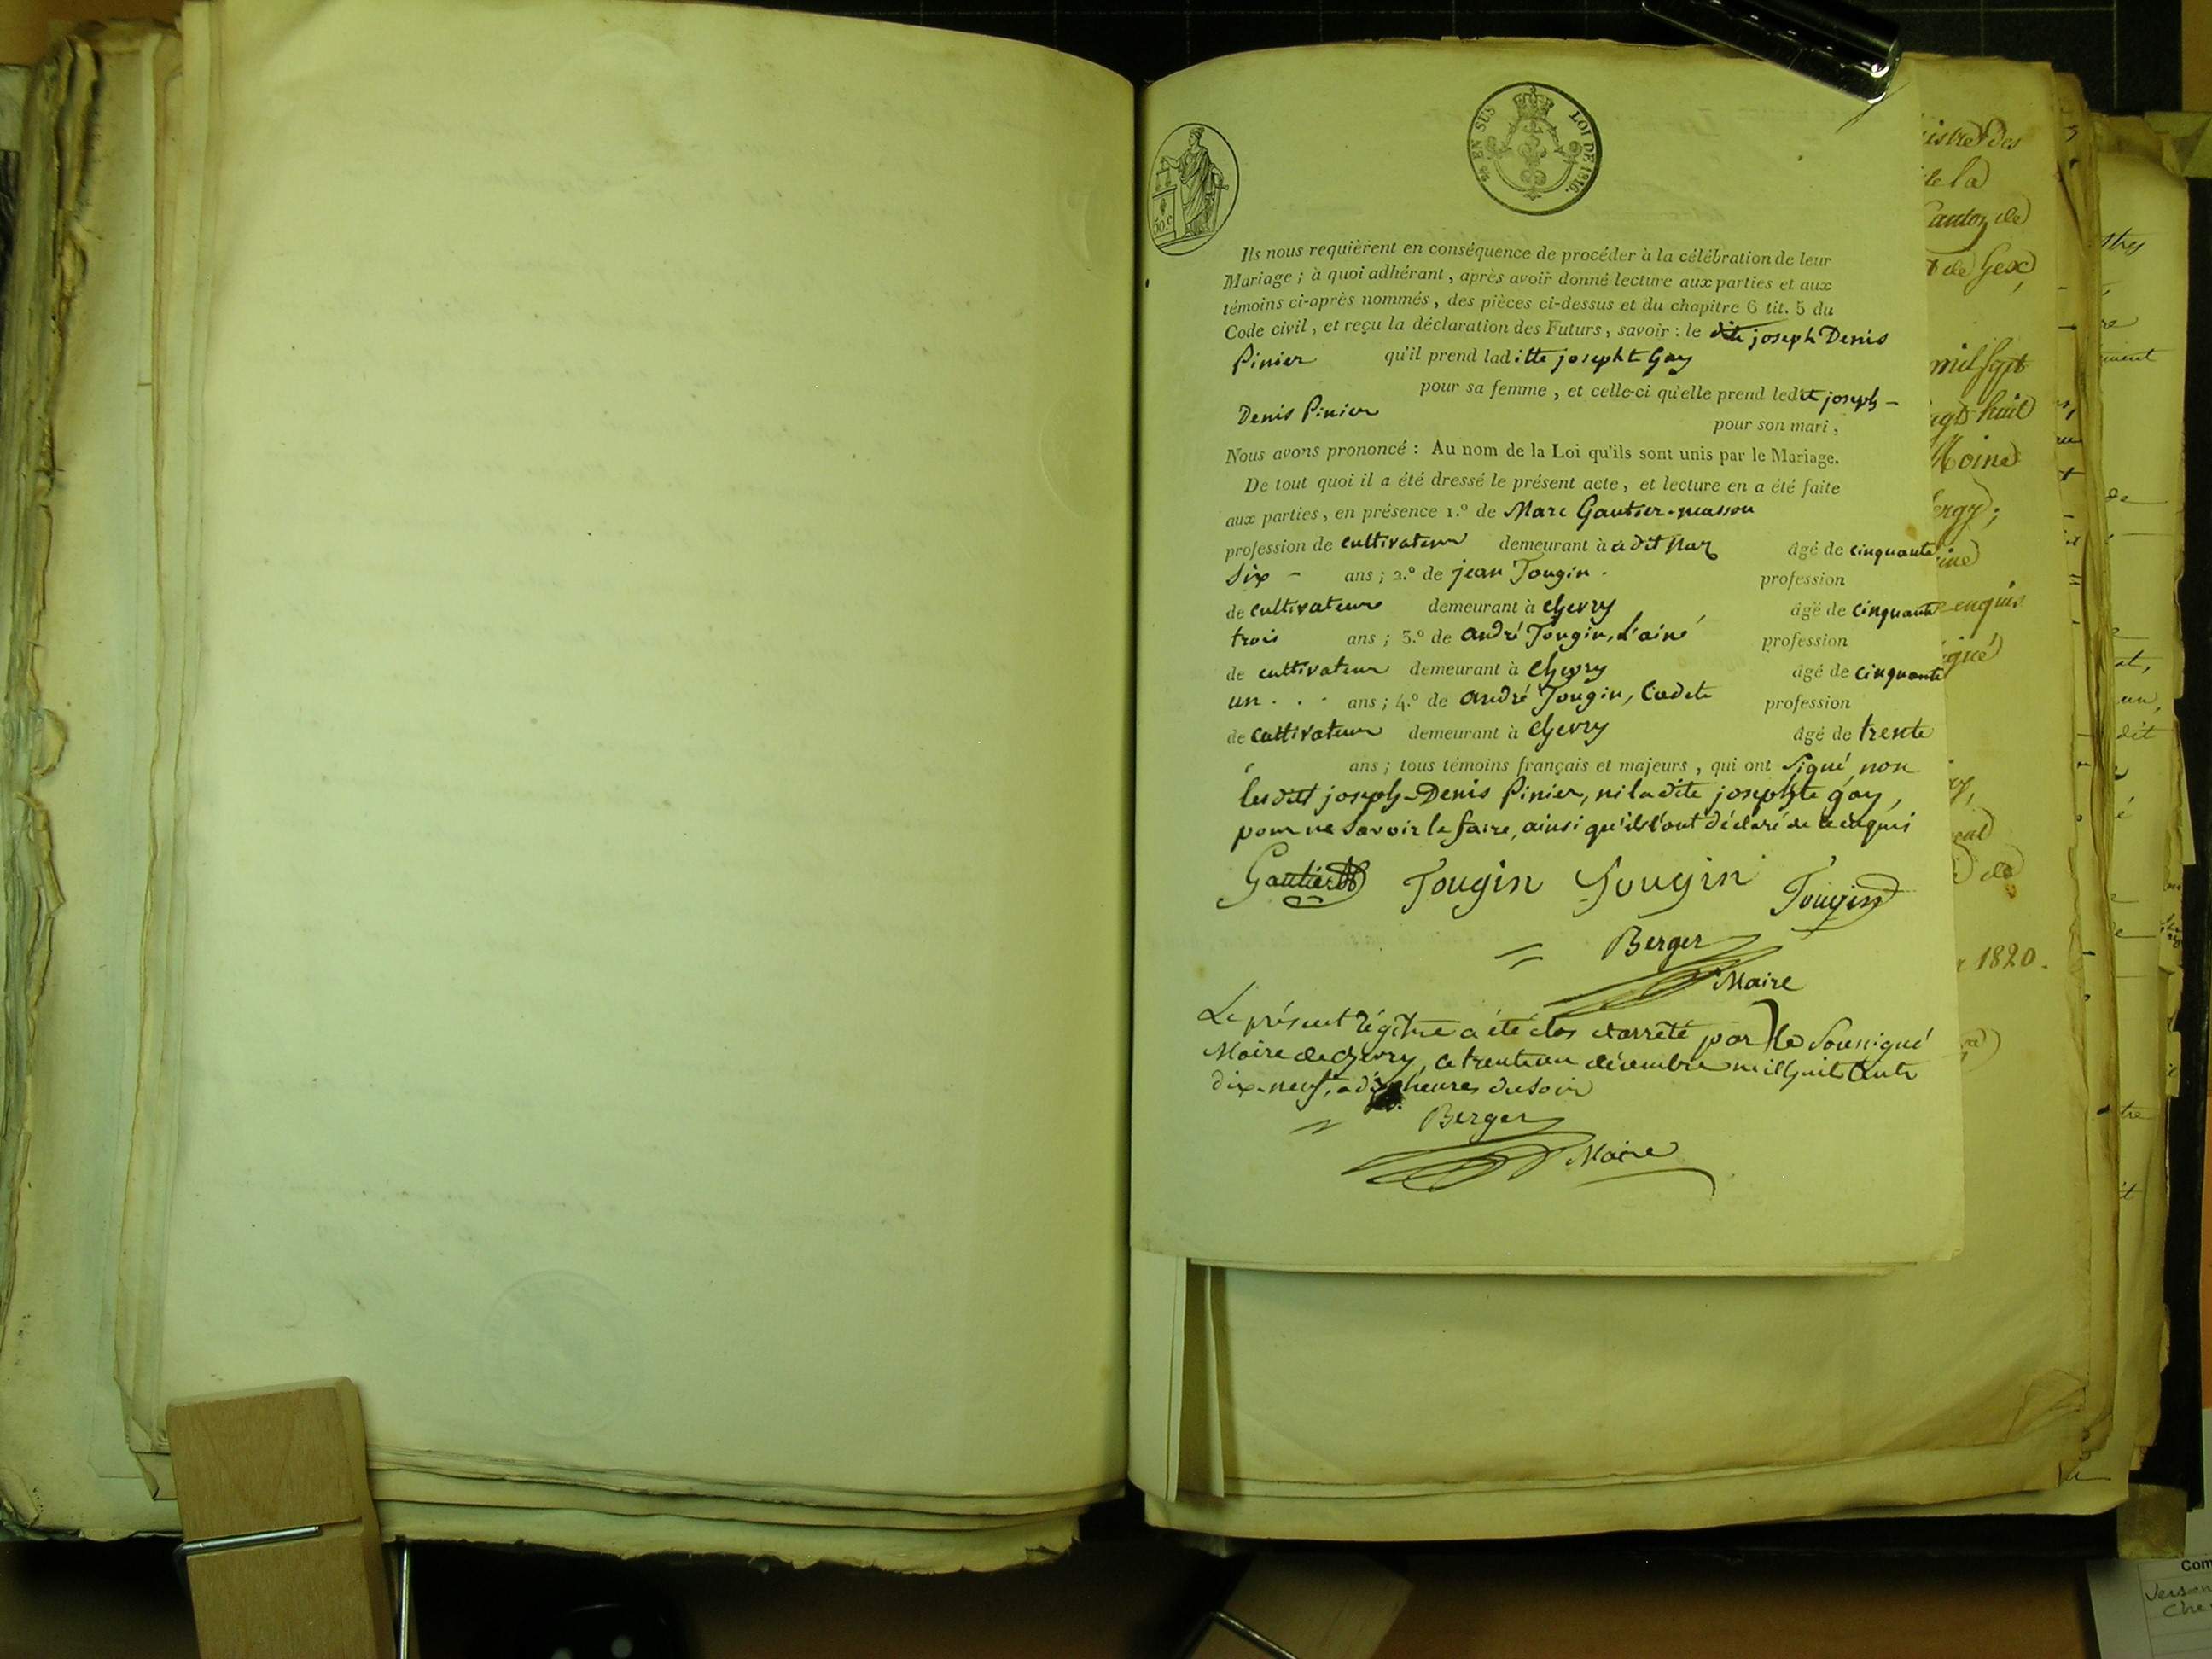 EN SUS LOI DE 1816.
50.c
Ils nous requièrent en conséquence de procéder à la célébration de leur
Mariage ; à quoi adhérant, après avoir donné lecture aux parties et aux
témoins ci-après nommés, des pièces ci-dessus et du chapitre 6 tit. 5 du
Code civil, et reçu la déclaration des Futurs, savoir : le dit joseph Denis
Pinier qu'il prend laditte josephte Gay
pour sa femme, et celle-ci qu'elle prend ledit joseph-
Denis Pinier
pour son mari,
Nous avons prononcé : Au nom de la Loi qu'ils sont unis par le Mariage.
De tout quoi il a été dressé le présent acte, et lecture en a été faite
aux parties, en présence 1.º de Marc Gautier-masson
profession de cultivateur demeurant à âgé de cinquante
six - ans ; 2.º de jean Tougin. profession
de cultivateur demeurant à chevry âgé de cinquante
trois ans ; 3.º de andré Tougin, l'ainé profession
de cultivateur demeurant à chevry âgé de cinquante
un . . . ans ; 4.º de andré Tougin, Cadet profession
de cultivateur demeurant à chevry âgé de trente
ans ; tous témoins français et majeurs, qui ont signé, non
lesdits joseph-Denis Pinier, ni la dite josephte gay,
pour ne savoir le faire, ainsi qu'ils l'ont déclaré de ce enquis
Gautier Tougin Tougin Tougin
Berger
Maire
Le présent régitre a été clos et arrêté par Nous soussigné
Maire de chevry, ce trente un décembre mil huit cents
dix-neuf, a dix heures du soir
Berger
Maire
istre des
de la
Canton de
t de Gex,
mil sept
ingt huit
Moine
ergy;
enquis
igné
de
1820.
dit